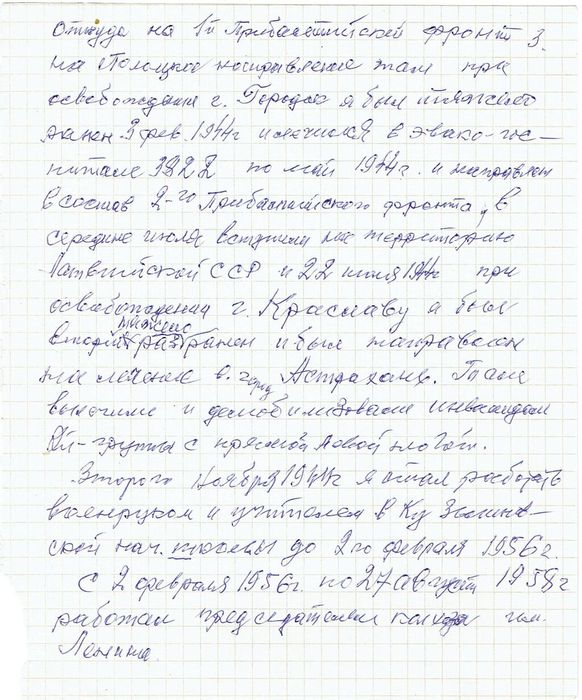 Откуда на 1й Прибалтийский фронт З.
на Полоцкое направление там при
освобождении г. Городок я был тяжело
ранен 3 фев. 1944г и лечился в эвако-гос-
питале 3922 по май 1944г. и направлен
в состав 2-го Прибалтийского фронта, в
середине июля вступили на территорию
Латвийской ССР и 22 июля 1944г при
освобождении г. Краславу я был
второй тяжело раз ранен и был направлен
на лечение в. город Астрахань. Там
вылечили и демобилизовали инвалидом
группы с левой ногой.
Второго ноября 1944г я стал работать
военруком и учителем в
ской нач. школы до 2го февраля 1956г.
С 2 февраля 1956г. по 27 август 1958г
работал председателем колхоза им.
Ленина.